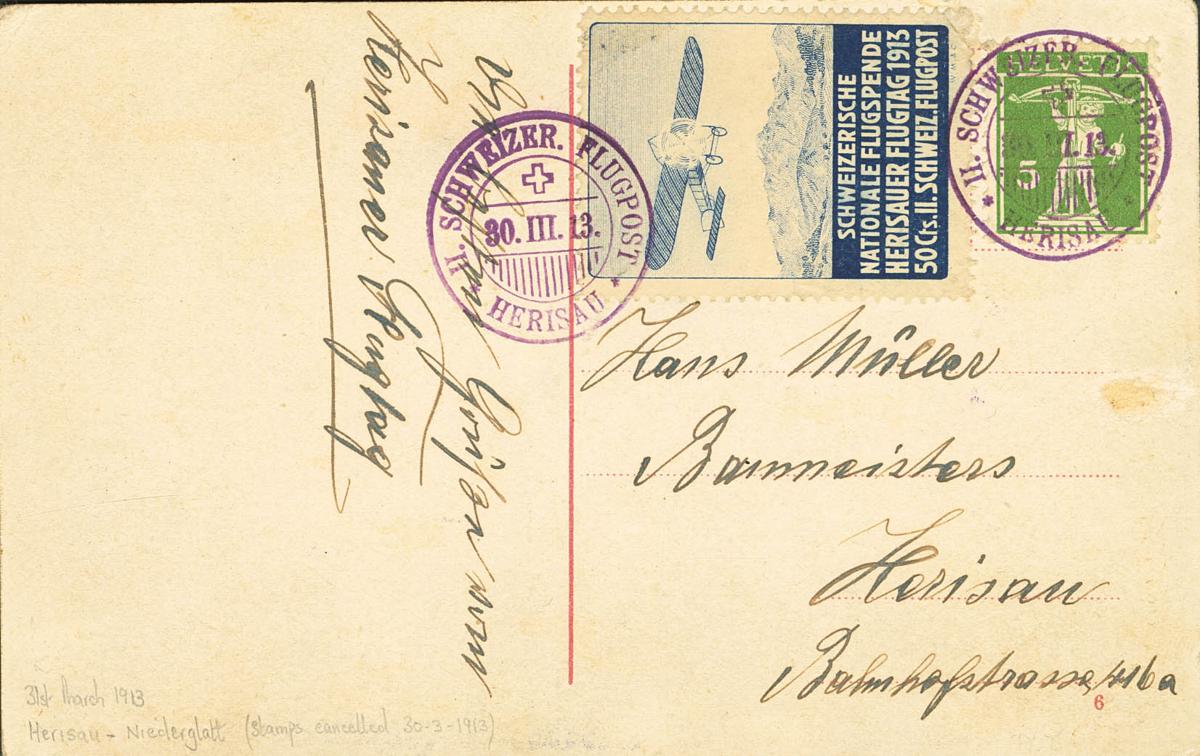 Herisauer Flugtag
Grüßen vom
II. SCHWEIZER. FLUGPOST
30. III. 13.
* HERISAU *
SCHWEIZERISCHE
NATIONALE FLUGSPENDE
HERISAUER FLUGTAG 1913
50 Cts. II. SCHWEIZ. FLUGPOST
HELVETIA
5
II. SCHWEIZER. FLUGPOST
* HERISAU *
Hans Müller
Baumeisters
Herisau
Bahnhofstrasse 416a
6
31st March 1913
Herisau - Niederglatt (Stamps cancelled 30-3-1913)